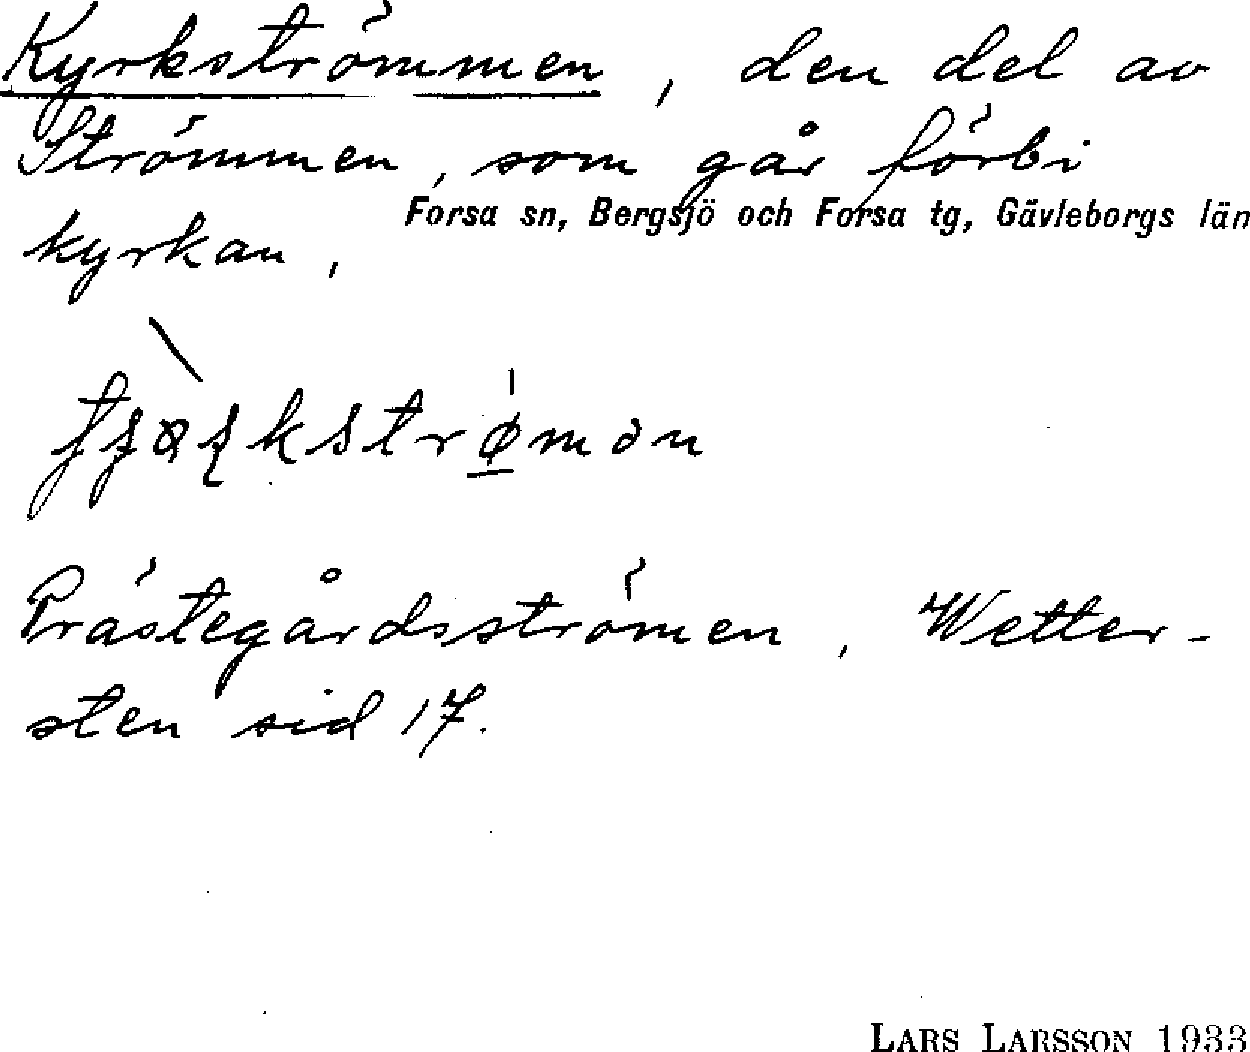 Kyrkströmmen, den del av
Strömmen, som går förbi
Forsa sn, Bergsjö och Forsa tg, Gävleborgs län
kyrkan,
Prästegårdsströmen, Wetter-
sten sid 17.
LARS LARSSON 1933